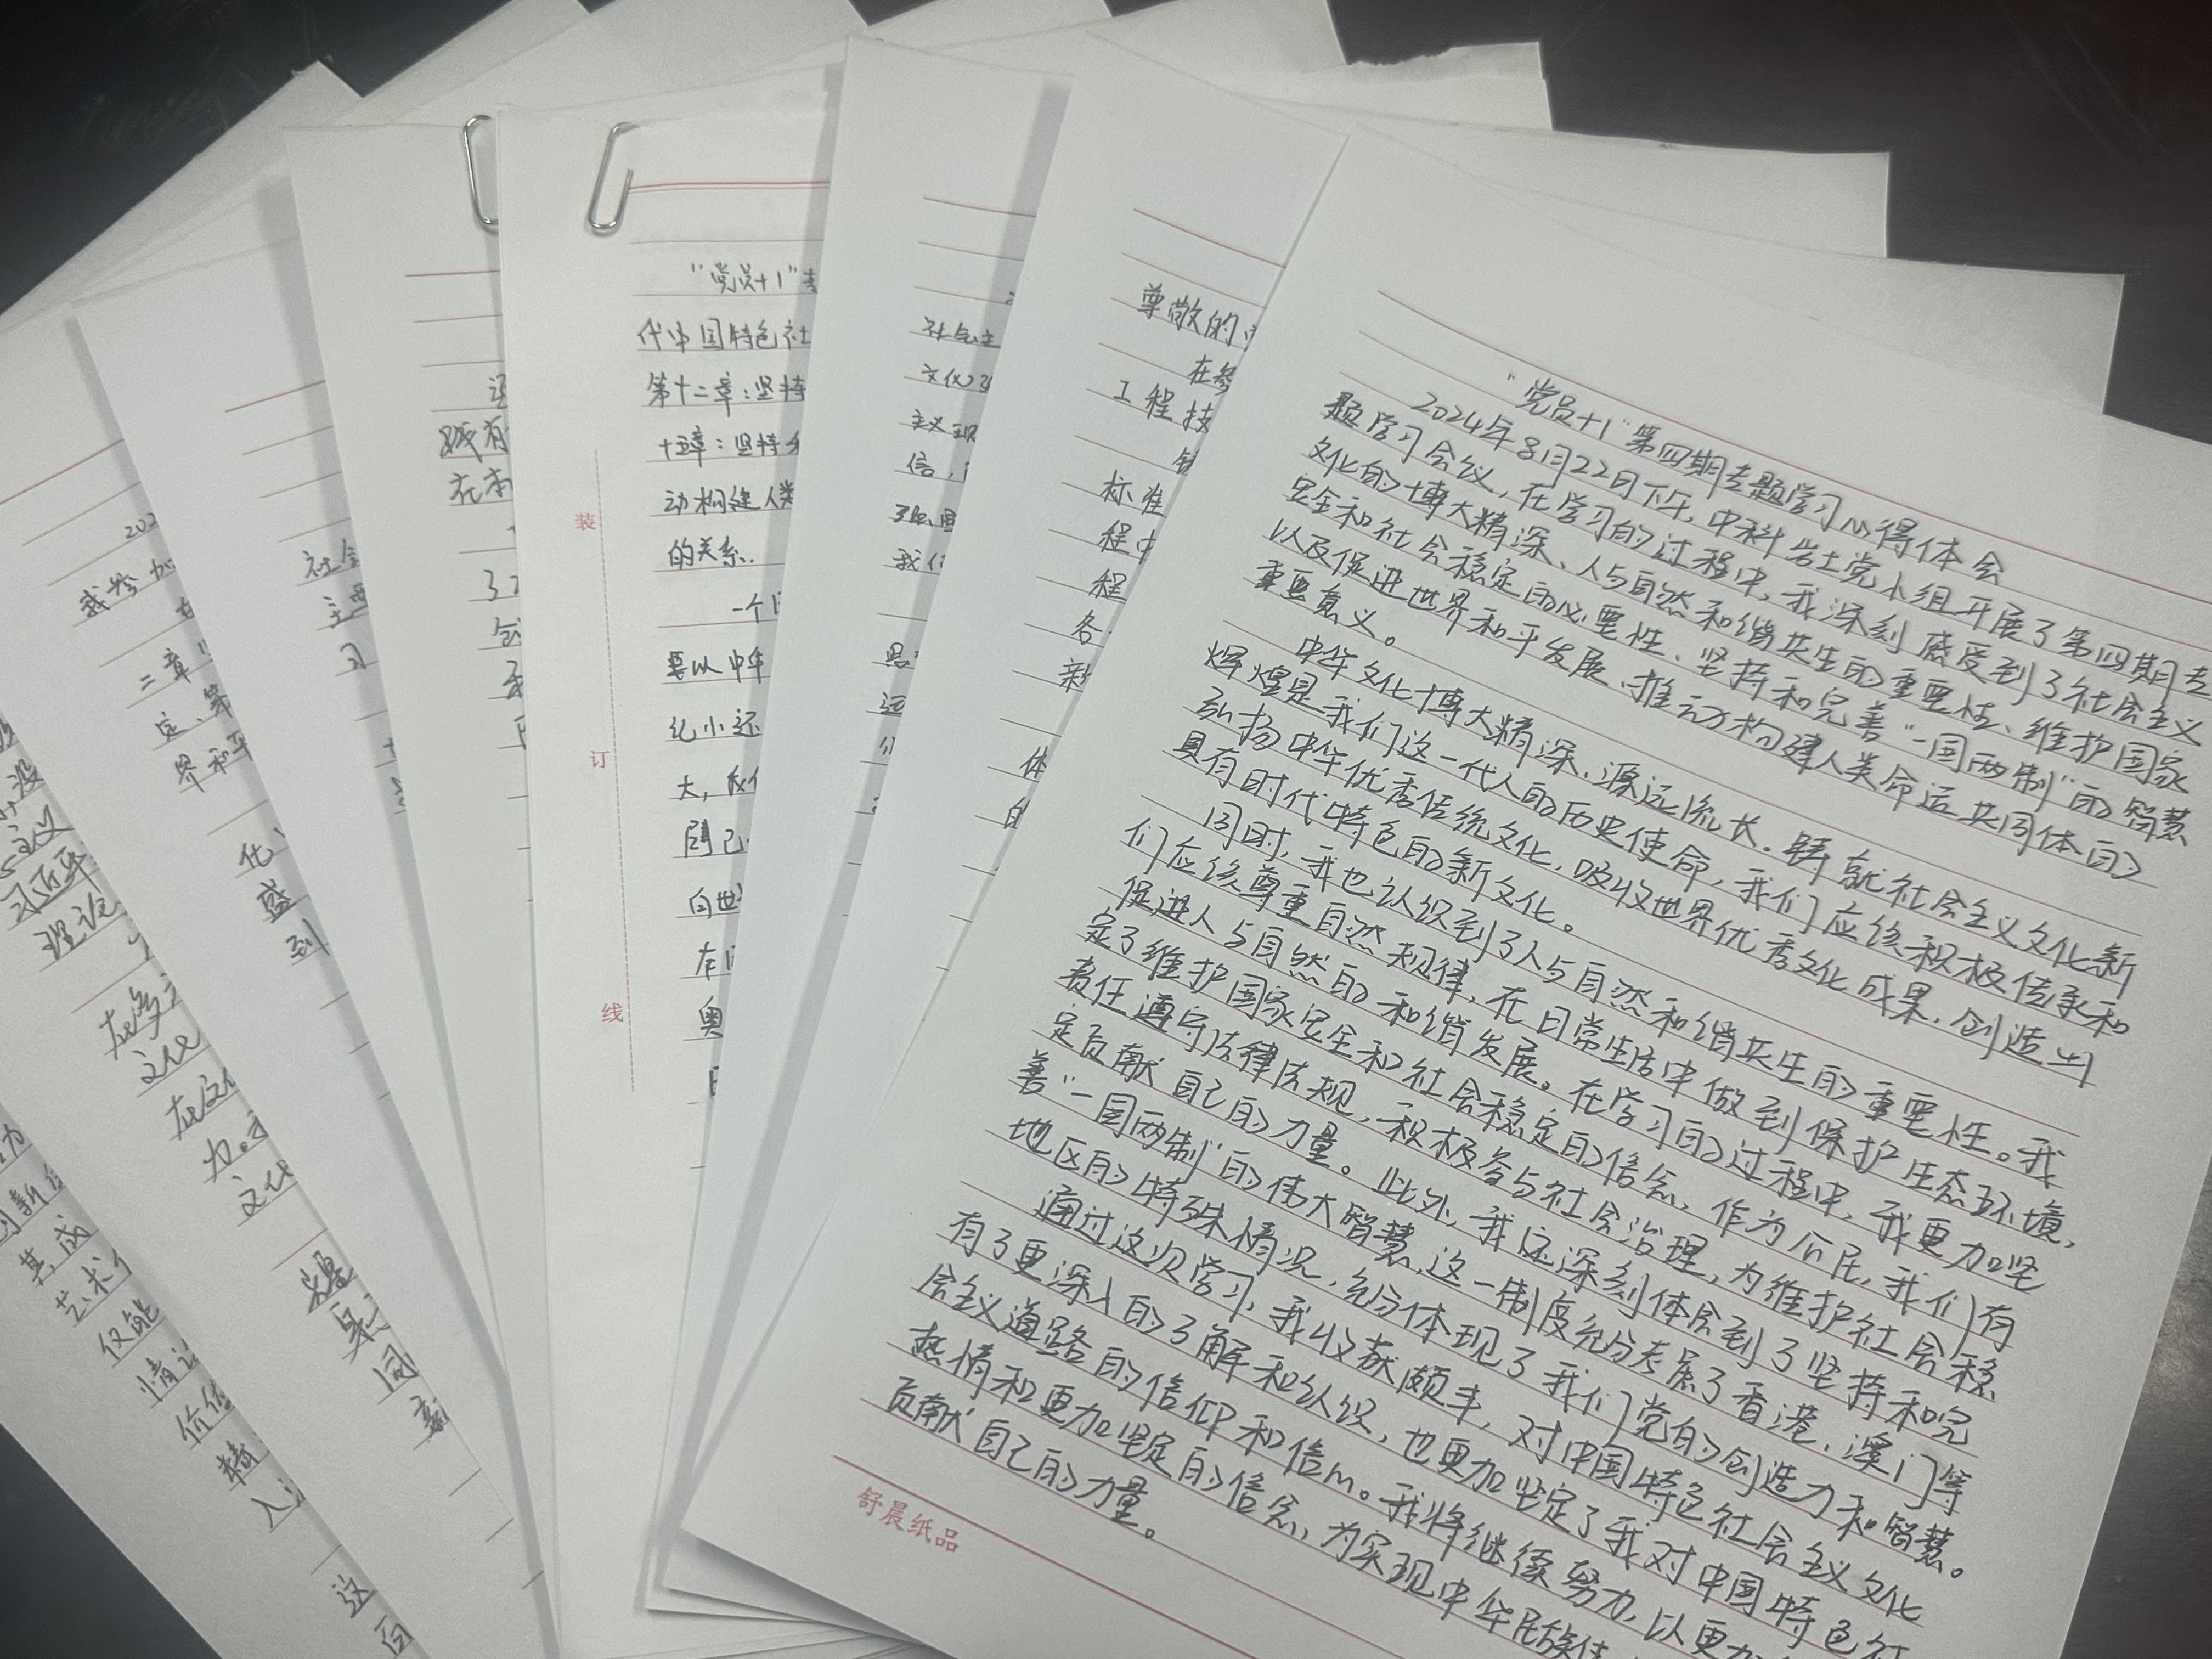 "党员+1"第四期专题学习心得体会
2024年8月22日下午,中科岩土党小组开展了第四期专
题学习会议,在学习的过程中,我深刻感受到了社会主义
文化的博大精深、人与自然和谐共生的重要性、维护国家
安全和社会稳定的必要性、坚持和完善"一国两制"的智慧
以及促进世界和平发展、推动构建人类命运共同体的
重要意义。
中华文化博大精深、源远流长。铸就社会主义文化新
辉煌是我们这一代人的历史使命,我们应该积极传承和
弘扬中华优秀传统文化,吸收世界优秀文化成果,创造出
具有时代特色的新文化。
同时,我也认识到了人与自然和谐共生的重要性。我
们应该尊重自然规律,在日常生活中做到保护生态环境,
促进人与自然的和谐发展。在学习的过程中,我更加坚
定了维护国家安全和社会稳定的信念,作为公民,我们有
责任遵守法律法规,积极参与社会治理,为维护社会稳
定贡献自己的力量。此外,我还深刻体会到了坚持和完
善"一国两制"的伟大智慧,这一制度充分考虑了香港、澳门等
地区的特殊情况,充分体现了我们党的创造力和智慧。
通过这次学习,我收获颇丰,对中国特色社会主义文化
有了更深入的了解和认识,也更加坚定了我对中国特色社
会主义道路的信仰和信心。我将继续努力,以更加
热情和更加坚定的信念,为实现中华民族
贡献自己的力量。
舒晨纸品
尊敬的
在参
工程技
标准
程中
程
各
新
体
的
社会主
文化
主义现
信,
我们
"党员+1"专
代中国特色社
第十二章:坚持
十五章:坚持
动构建人类
的关系.
一个
要以中华
化小还
大,我们
向世
奥
装
订
线
践有
在本
社会
主要
习
202
我参加
二章
定、第
界和平
化、
盛
到
没
主义
习近平
理论
在多
文化
在文
力。
文化
是
同
新
其成
艺术
仅能
情
价值
精
人
这